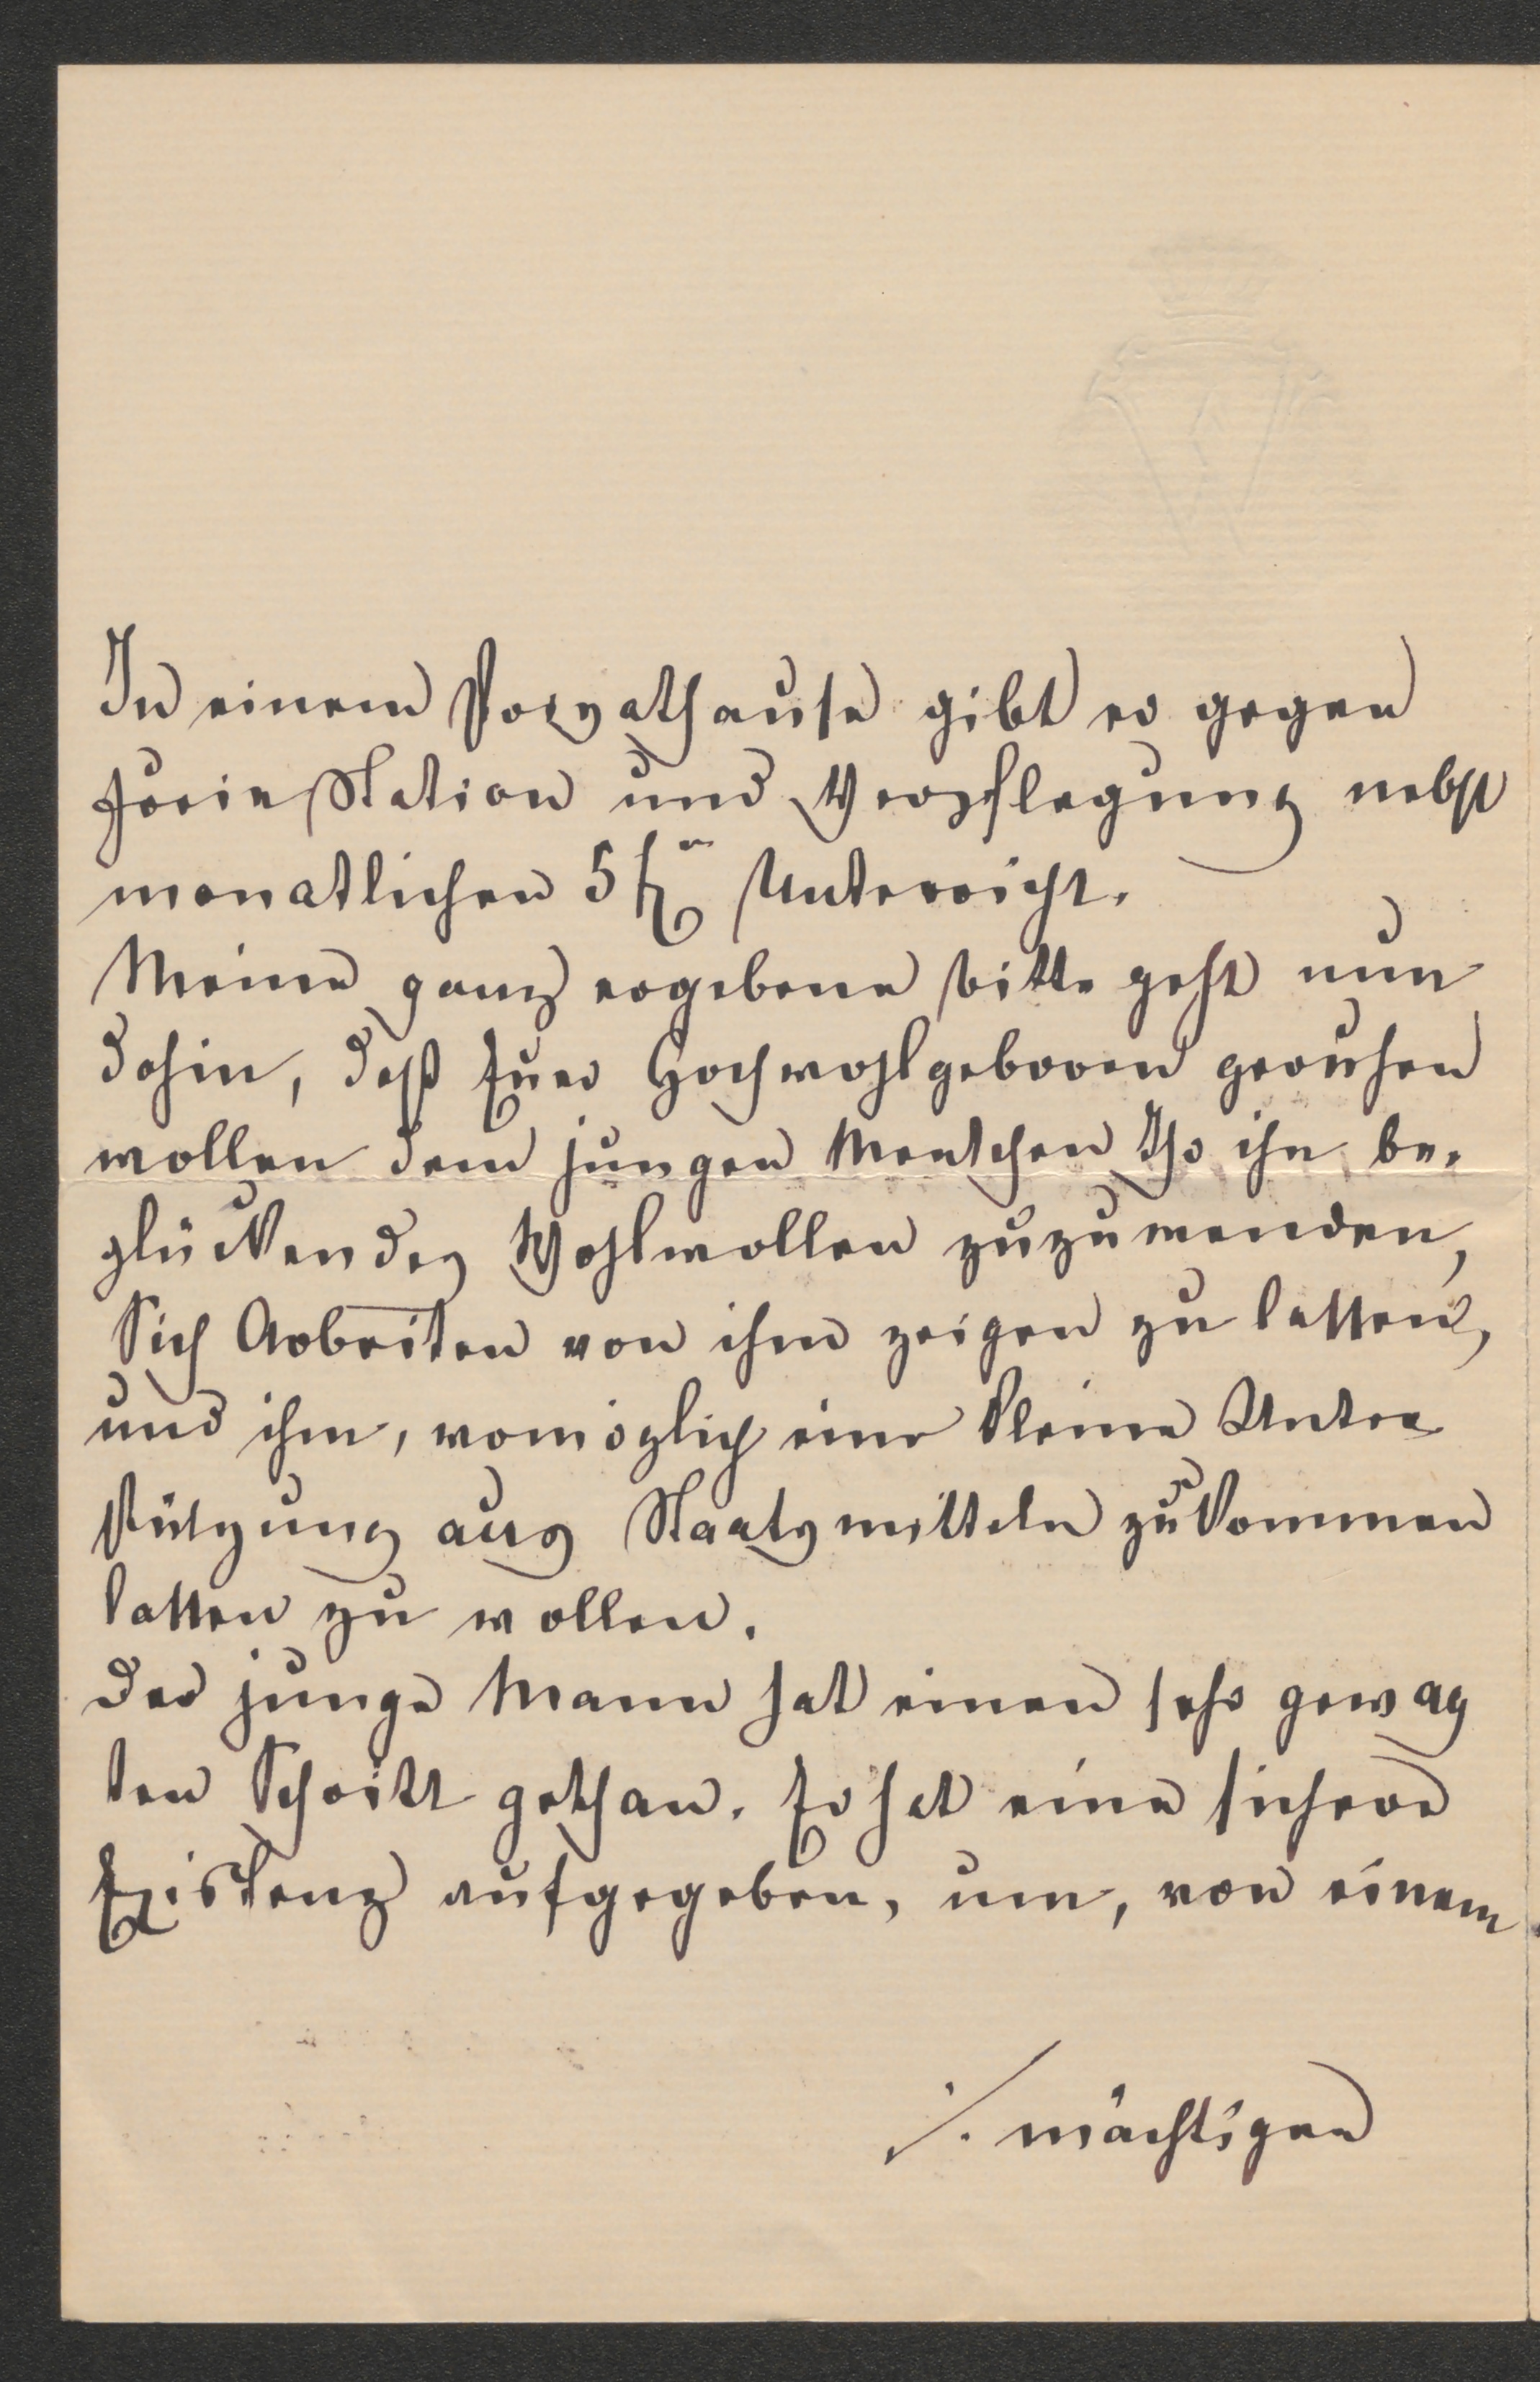 In einem Privathause gibt er gegen
freie Station und Verpflegung nebst
monatlichen 5 fl Unterricht.
Meine ganz ergebene Bitte geht nun
dahin, daß Euer Hochwohlgeboren geruhen
wollen dem jungen Menschen Ihr ihn be-
glückendes Wohlwollen zuzuwenden,
Sich Arbeiten von ihm zeigen zu lassen,
und ihm, womöglich eine kleine Unter
stützung aus Staatsmitteln zukommen
lassen zu wollen.
Der junge Mann hat einen sehr gewag
ten Schritt gethan. Er hat eine sichere
Existenz aufgegeben, um, von einem
./. mächtigen